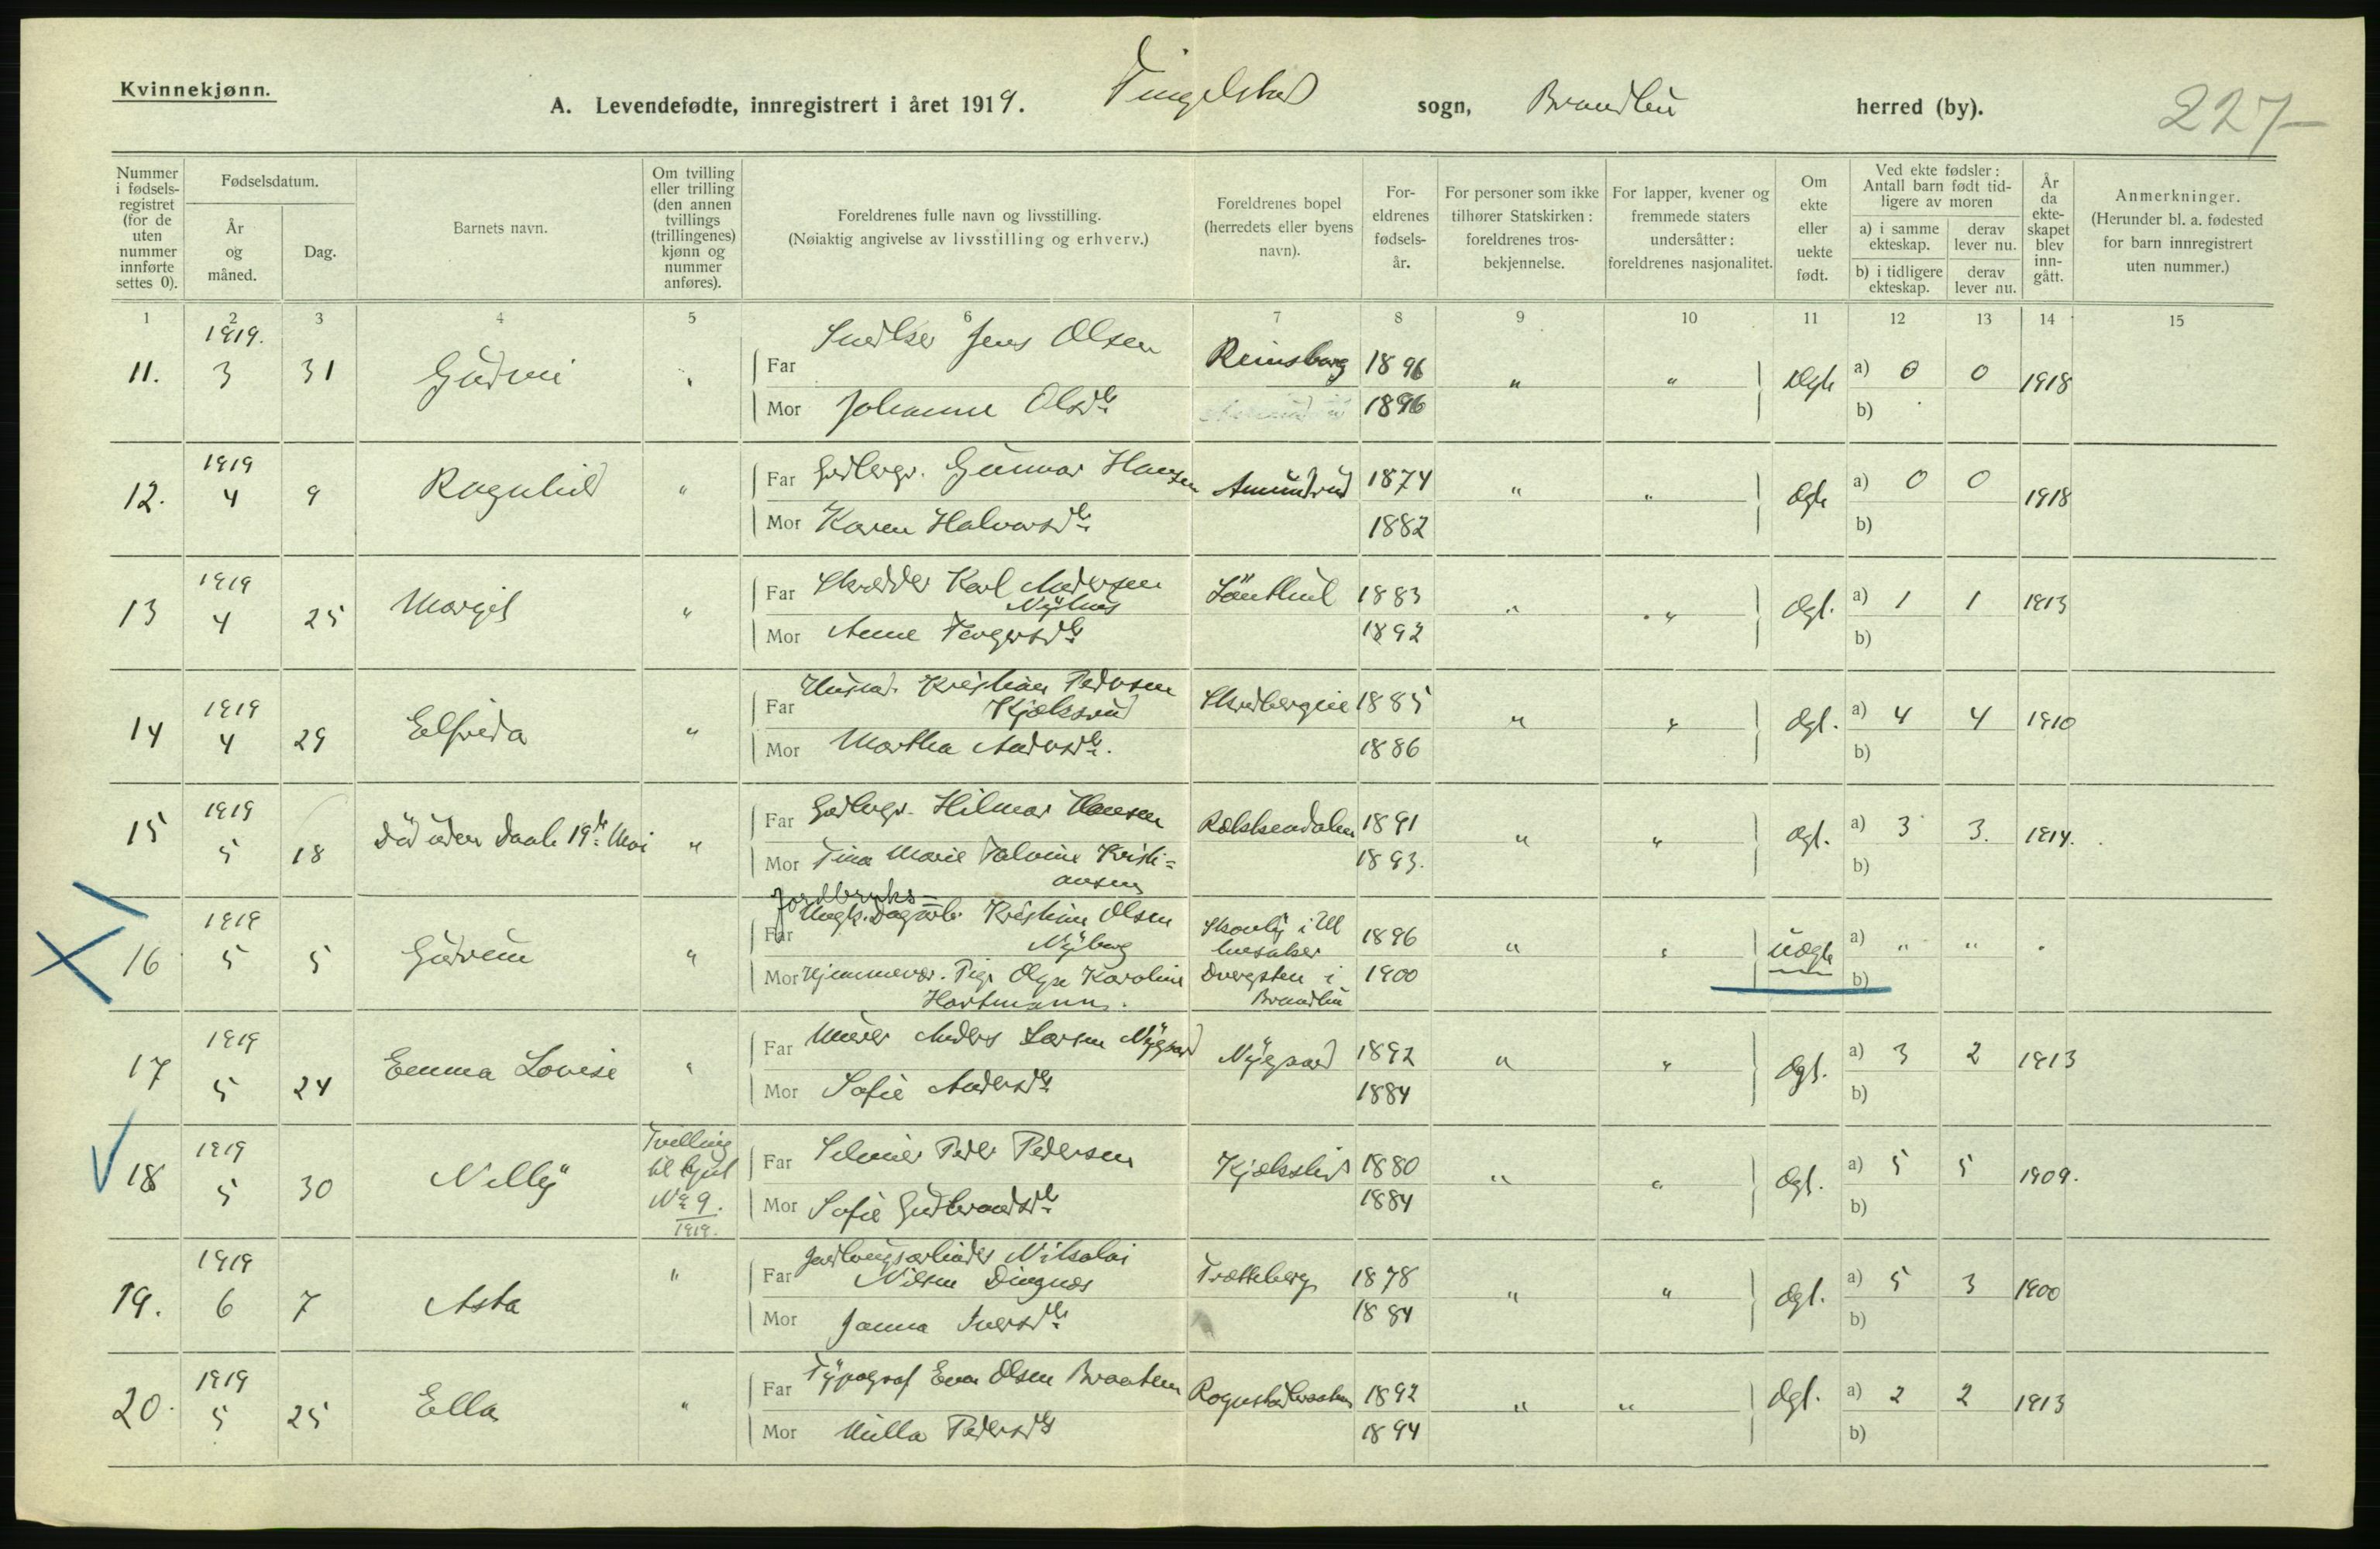 Kvinnekjønn.
A. Levendefødte, innregistrert i året 1919. Tingelstad sogn, Brandbu herred (by). 227
Nummer i fødselsregistret (for de uten nummer innførte settes 0).
Fødselsdatum.
År og måned.
Dag.
Barnets navn.
Om tvilling eller trilling (den annen tvillings (trillingenes) kjønn og nummer anføres).
Foreldrenes fulle navn og livsstilling.
(Nøiaktig angivelse av livsstilling og erhverv.)
Foreldrenes bopel (herredets eller byens navn).
Foreldrenes fødselsår.
For personer som ikke tilhører Statskirken: foreldrenes trosbekjennelse.
For lapper, kvener og fremmede staters undersåtter: foreldrenes nasjonalitet.
Om ekte eller uekte født.
Ved ekte fødsler: Antall barn født tidligere av moren
a) i samme ekteskap.
derav lever nu.
b) i tidligere ekteskap.
derav lever nu.
År da ekteskapet blev inngått.
Anmerkninger.
(Herunder bl. a. fødested for barn innregistrert uten nummer.)
1 2 3 4 5 6 7 8 9 10 11 12 13 14 15
11. 1919. 3 31 Gudvei " Far Snedker Jens Olsen Reinsborg 1896 " " Ægte a) 0 0 1918
Mor Johanne Olsdtr 1896 b)
12. 1919 4 9 Ragnhild " Far Gunnar Hansen Amundrud 1874 " " Ægte a) 0 0 1918
Mor Karen Halvorsdtr 1882 b)
13 1919 4 25 Margit " Far Skrædder Karl Andersen Nyhus 1883 " " Ægt. a) 1 1 1913
Mor Anne 1892 b)
14 1919 4 29 Elfrida " Far Kristian Pedersen Kjølsrud 1885 " " Ægt. a) 4 4 1910
Mor Martha Andersdtr. 1886 b)
15 1919 5 18 Död uden Daab 19de Mai " Far Hilmar Hansen 1891 " " Ægt. a) 3 3. 1914.
Mor Tina Marie Kristiansen 1893. b)
16 1919 5 5 Gudrun " Far Jordbruks- Ungk. Dagarb. Kristian Olsen Nyborg Skovly i Ullensaker 1896 " " uægte a) " " "
Mor Hjemmevær. Pige Olga Karoline Hartmann. Dvergsten i Brandbu 1900 b)
17 1919 5 24 Emma Lovise " Far Murer Anders Larsen Nygaard Nygaard 1892 " " Ægt. a) 3 2 1913
Mor Sofie Andersdtr 1884 b)
18 1919 5 30 Nelly Tvilling til Gut No 9. 1919. Far Peder Pedersen 1880 " " Ægt. a) 5 5 1909.
Mor Sofie Gudbrandsdtr 1884 b)
19. 1919 6 7 Asta " Far Jordbrugsarbeider Nikolai Nilsen Dingnæs Trætteberg 1878 " " Ægt. a) 5 3 1900
Mor Janna Iversdtr 1884 b)
20. 1919 5 25 Ella " Far Typograf Even Olsen Braaten Rognstadbraaten 1892 " " Ægt. a) 2 2 1913
Mor Milla Pedersdtr 1894 b)